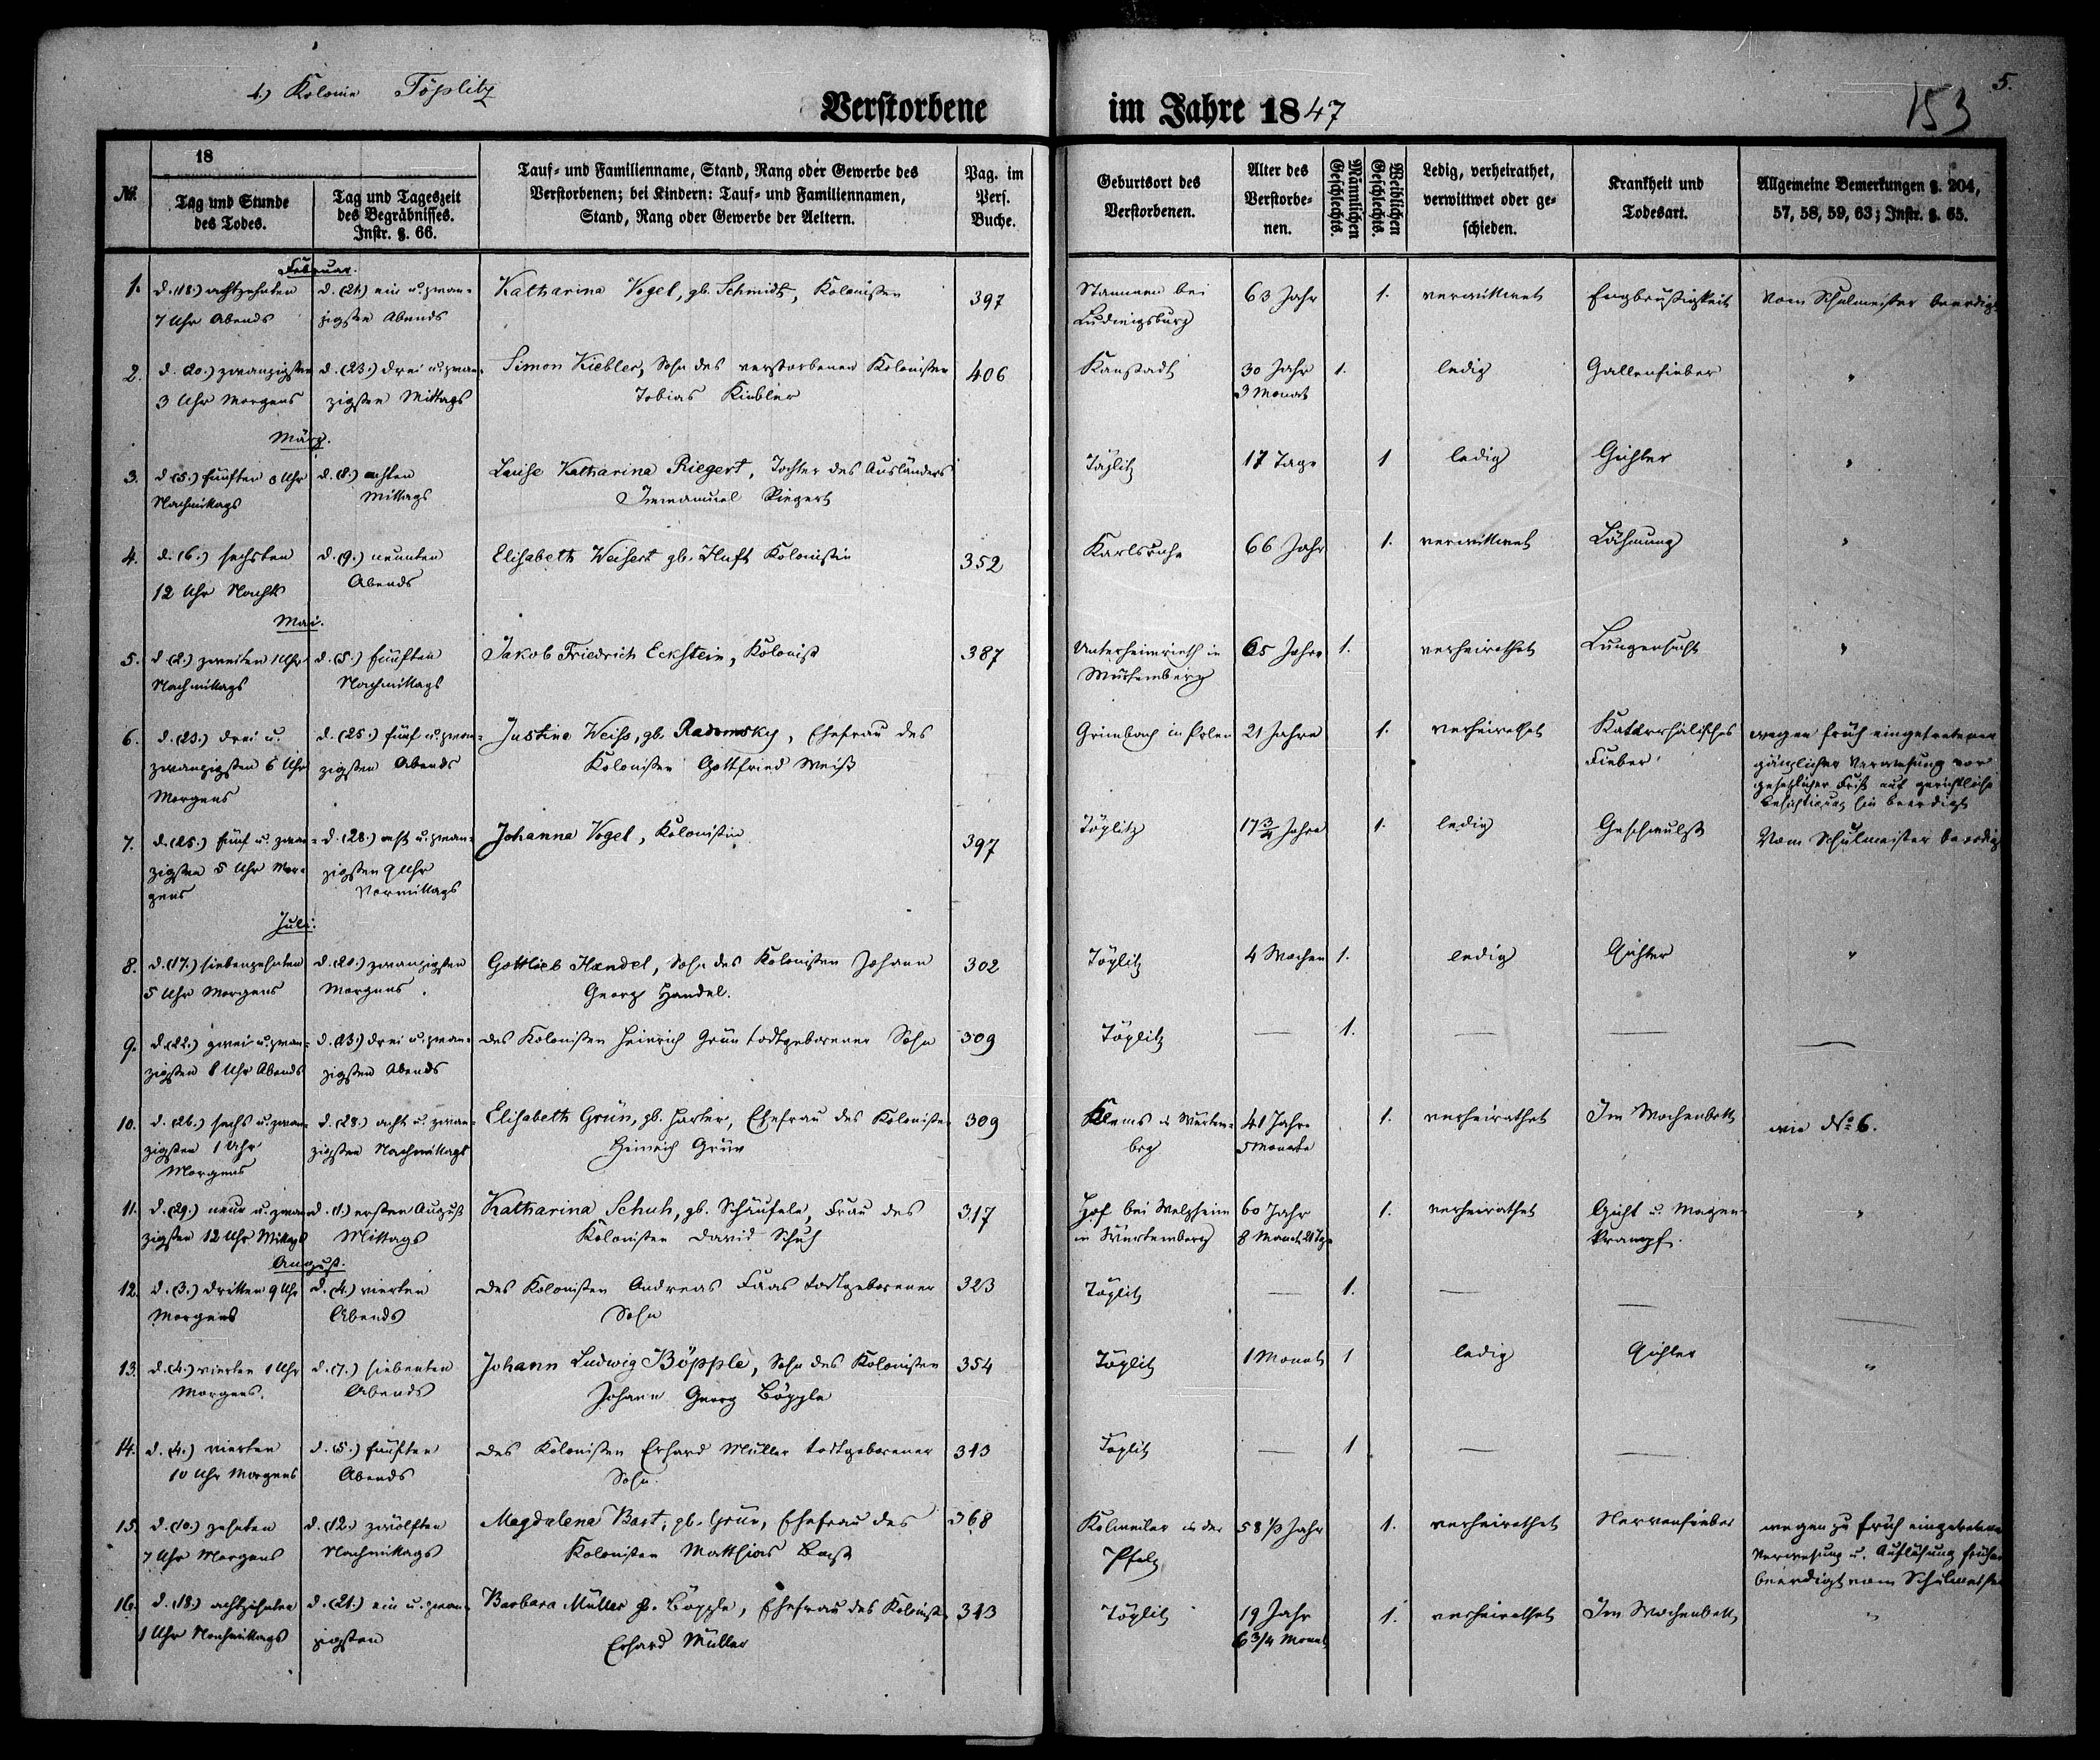 4.) Kolonie Töplitz
5.
153
Verstorbene im Jahre 1847
№.
18
Tag und Stunde
des Todes.
Tag und Tageszeit
des Begräbnisses.
Instr. §. 66.
Tauf- und Familienname, Stand, Rang oder Gewerbe des
Verstorbenen; bei Kindern: Tauf- und Familiennamen,
Stand, Rang oder Gewerbe der Aeltern.
Pag. im
Pers.
Buche.
Geburtsort des
Verstorbenen.
Alter des
Verstorbe-
nen.
Männlichen
Geschlechts.
Weiblichen
Geschlechts.
Ledig, verheirathet,
verwittwet oder ge-
schieden.
Krankheit und
Todesart.
Allgemeine Bemerkungen §. 204,
57, 58, 59, 63; Instr. §. 65.
Februar.
1. d. (18.) achtzehnten d. (21.) ein u. zwan- Katharina Vogel, gb. Schmidt, Kolonisten 397 Stammen bei 63 Jahr 1. verwittwet Engbrüstigkeit Vom Schulmeister beerdigt
7 Uhr Abends zigsten Abends Ludwigsburg
2. d. (20.) zwanzigsten d. (23.) drei u. zwan- Simon Kiebler, Sohn des verstorbenen Kolonisten 406 Kanstadt 30 Jahr 1. ledig Gallenfieber "
3 Uhr Morgens zigsten Mittags Tobias Kiebler 3 Monat
März.
3. d. (5.) fünften Uhr d. (8.) achten Louise Katharina Riegert, Tochter des Ausländers Töplitz 17 Tage 1 ledig Gichter "
Nachmittags Mittags Immanuel Riegert
4. d. (6.) sechsten d. (9.) neunten Elisabeth Weisert gb. Kolonistin 352 Karlsruhe 66 Jahr 1. verwittwet Lähmung "
12 Uhr Nachts Abends
Mai.
5. d. (2.) zweiten 1 Uhr d. (5.) fünften Jakob Friedrich Eckstein, Kolonist 387 Unterheinrieth in 65 Jahre 1. verheirathet Lungensucht "
Nachmittags Nachmittags Würtemberg
6. d. (23.) drei u. d. (25.) fünf u. zwan- Justine Weiss, gb. Radomsky, Ehefrau des Grünbach in Polen 21 Jahre 1. verheirathet Katarrhalisches wegen früh eingetretener
zwanzigsten 6 Uhr zigsten Abends Kolonisten Gottfried Weiss Fieber gänzlicher Verwesung vor
Morgens gesetzlicher Frist auf gerichtliche
Besichtigung hin beerdigt
7. d. (25.) fünf u. zwan- d. (28.) acht u. zwan- Johanna Vogel, Kolonistin 397 Töplitz 17 3/4 Jahre 1. ledig Geschwulst Vom Schulmeister beerdigt
zigsten 5 Uhr Mor- zigsten 9 Uhr
gens Vormittags
Juli.
8. d. (17.) siebenzehnten d. (20.) zwanzigsten Gottlieb Handel, Sohn des Kolonisten Johann 302 Töplitz 4 Wochen 1. ledig Gichter "
5 Uhr Morgens Morgens Georg Handel.
9. d. (22.) zwei u. zwan- d. (23.) drei u. zwan- des Kolonisten Heinrich Grün todtgeborener Sohn 309 Töplitz — 1. — — —
zigsten 8 Uhr Abends zigsten Abends
10. d. (26.) sechs u. zwan- d. (28.) acht u. zwan- Elisabeth Grün, gb. Harter, Ehefrau des Kolonisten 309 in Würtem- 41 Jahre 1. verheirathet Im Wochenbett wie № 6.
zigsten 1 Uhr zigsten Nachmittags Heinrich Grün berg 5 Monate
Morgens
11. d. (29.) neun u. zwan- d. (1.) ersten August Katharina Schuh, gb. Schäufele, Frau des 317 Hof bei Welzheim 60 Jahr 1. verheirathet Gicht u. Magen- "
zigsten 12 Uhr Mittags Mittags Kolonisten David Schuh in Würtemberg 8 Monat 21 Tge krampf.
August.
12. d. (3.) dritten 9 Uhr d. (4.) vierten des Kolonisten Andreas Faas todtgeborener 323 Töplitz — 1. — — —
Morgens Abends Sohn
13. d. (4.) vierten 1 Uhr d. (7.) siebenten Johann Ludwig Böpple, Sohn des Kolonisten 354 Töplitz 1 Monat 1 ledig Gichter "
Morgens. Abends Johann Georg Böpple
14. d. (4.) vierten d. (5.) fünften des Kolonisten Erhard Müller todtgeborener 343 Töplitz — 1 — —
10 Uhr Morgens Abends Sohn.
15. d. (10.) zehnten d. (12.) zwölften Magdalena Bast, gb. Grün, Ehefrau des 368 in der 58 1/2 Jahr 1. verheirathet Nervenfieber wegen zu früh eingetretener
7 Uhr Morgens Nachmittags Kolonisten Matthias Bast Pfalz Verwesung u. Auflösung früher
beerdigt vom Schulmeister
16. d. (18.) achtzehnten d. (21.) ein u. zwan- Barbara Müller gb. Böpple, Ehefrau des Kolonist. 343 Töplitz 19 Jahr 1. verheirathet Im Wochenbett "
1 Uhr Nachmittags zigsten Erhard Müller 6 3/4 Monat